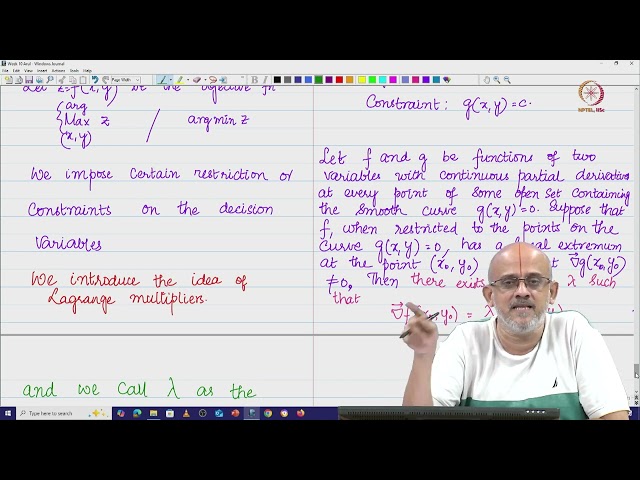 Week 10 Arul - Windows Journal
File Edit View Insert Actions Tools Help
Page Width
Let z=f(x,y) be the objective fn
{arg
Max z / argmin z
(x,y)
We impose certain restriction or
Constraints on the decision
Variables
We introduce the idea of
Lagrange multipliers.
and we call λ as the
Constraint: g(x,y)=c.
Let f and g be functions of two
variables with continuous partial derivatives
at every point of some open set containing
the smooth curve g(x,y)=0. Suppose that
f, when restricted to the points on the
curve g(x,y)=0, has a local extremum
at the point (x₀,y₀) ∇g(x₀,y₀)
≠0. Then there exists λ such
that
y₀) = λ
NPTEL, IISc
Type here to search